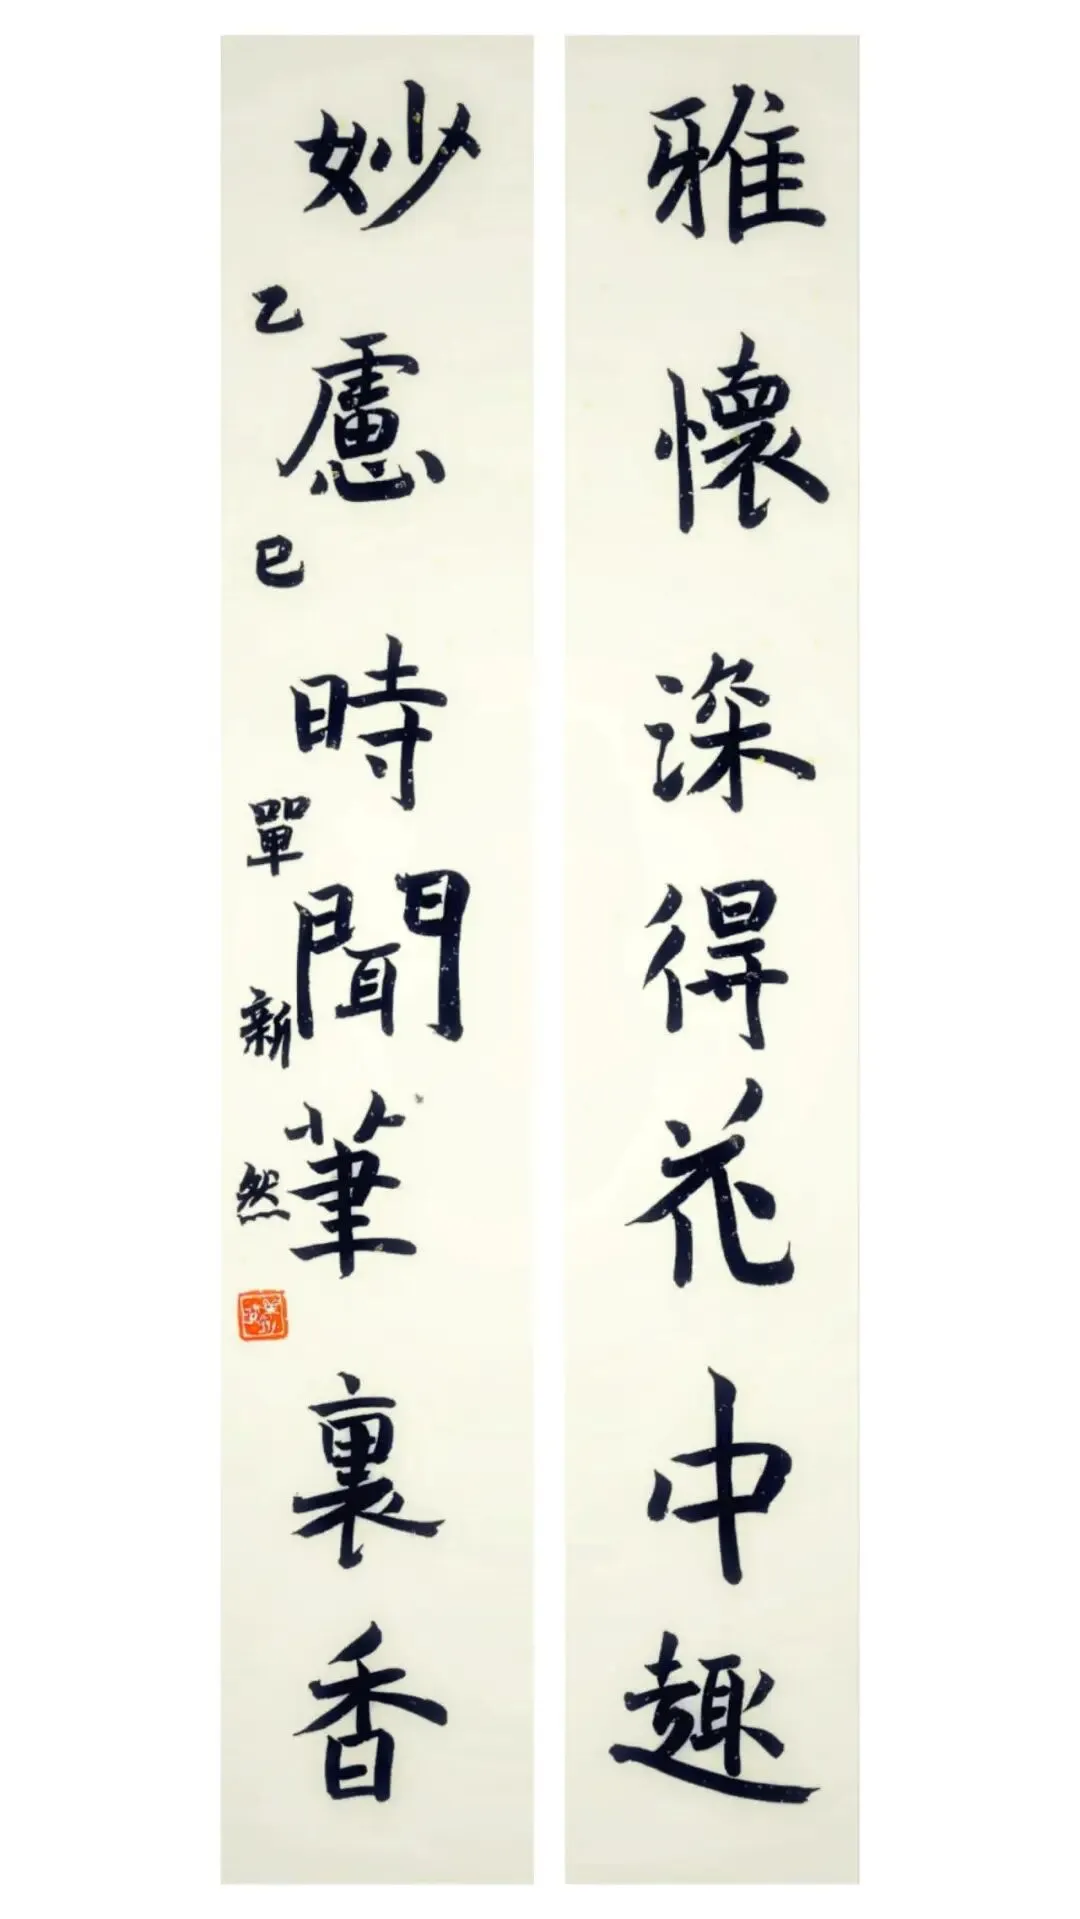 雅懷深得花中趣
妙慮時聞筆裏香
乙巳單新然